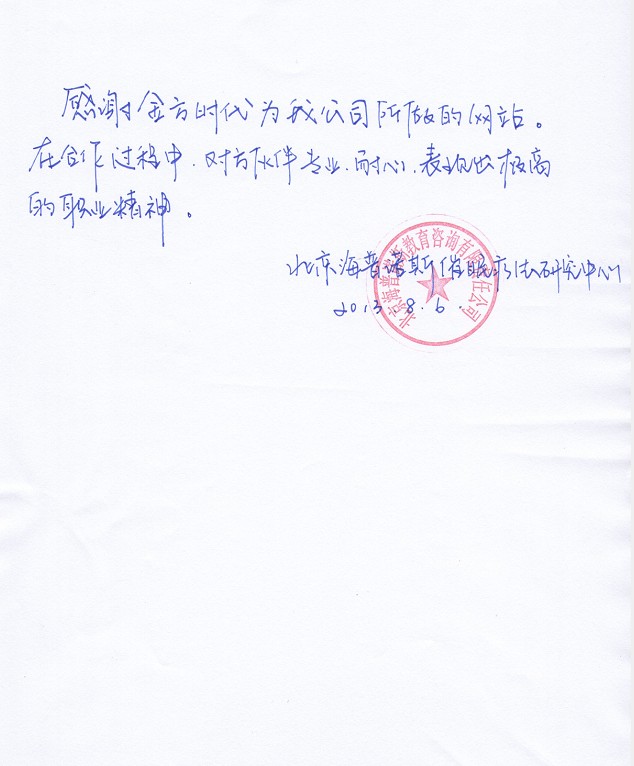 感谢金方时代为我公司所做的网站。
在合作过程中,对方伙伴专业、耐心,表现出极高
的职业精神。
北京海普诺斯催眠疗法研究中心
2013.8.6.
北京海普诺斯教育咨询有限责任公司